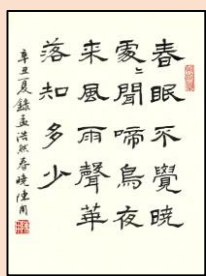 春眠不覺曉
處〻聞啼鳥夜
来風雨聲華
落知多少
辛丑夏錄孟浩然春曉